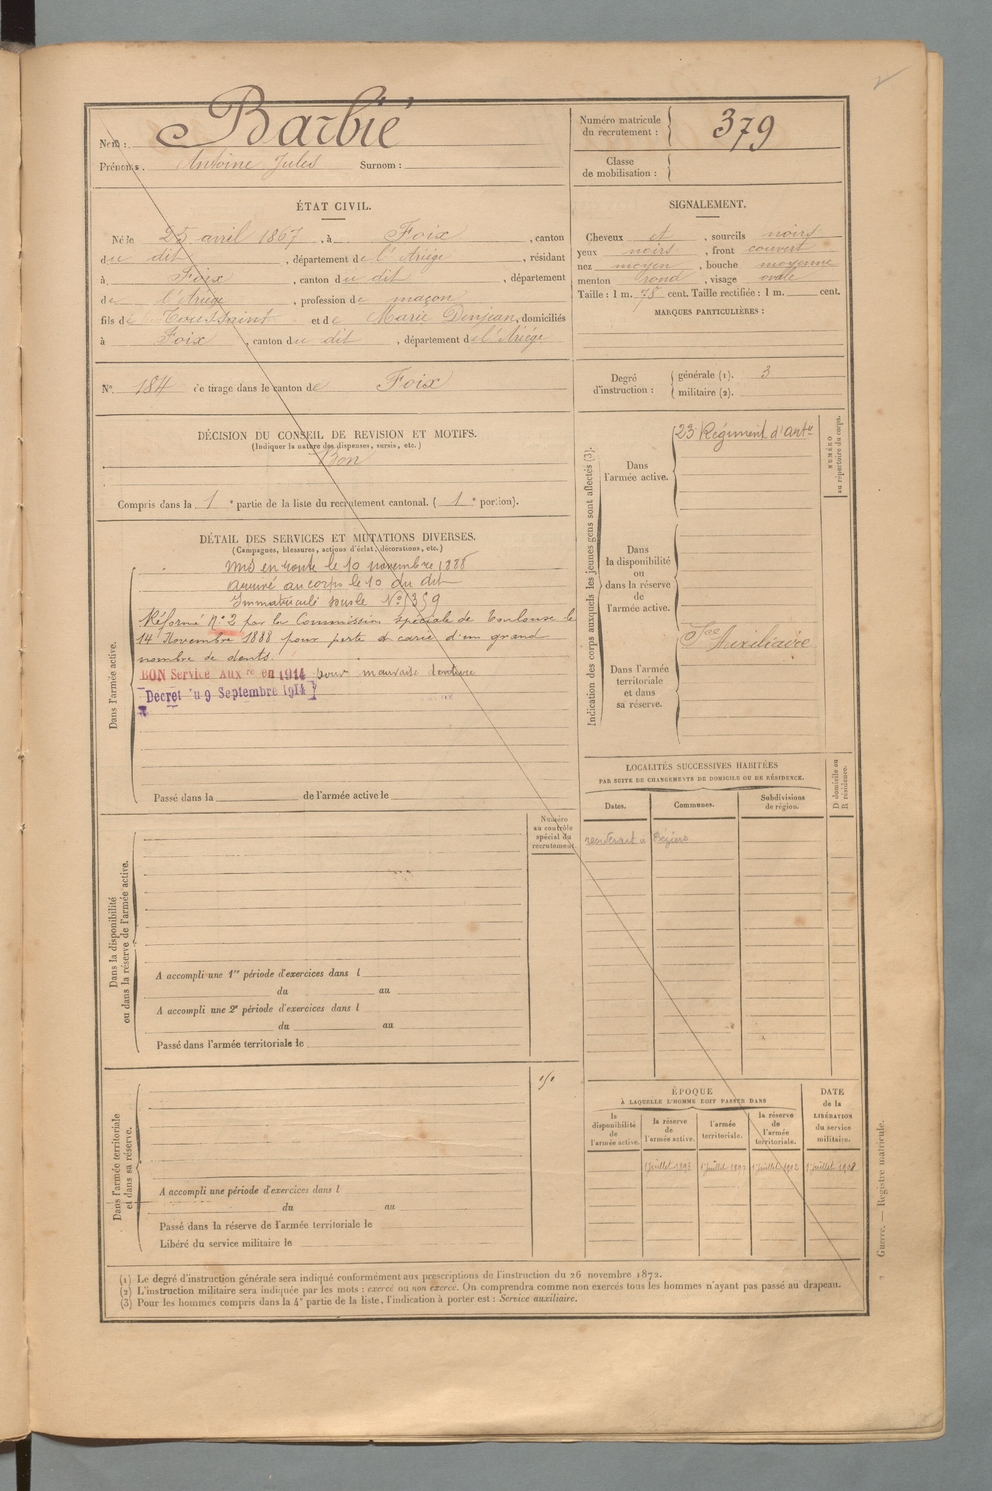 Nom : Barbié
Prénoms. Antoine Jules Surnom :
Numéro matricule du recrutement : 379
Classe de mobilisation :
ÉTAT CIVIL.
Né le 25 avril 1867, à Foix, canton
du dit, département de l'Ariège, résidant
à Foix, canton du dit, département
de l'Ariège, profession de maçon
fils de Toussaint et de Marie Denjean, domiciliés
à Foix, canton du dit, département de l'Ariège
No. 184 de tirage dans le canton de Foix
SIGNALEMENT.
Cheveux et, sourcils noirs
yeux noirs, front couvert
nez moyen, bouche moyenne
menton rond, visage ovale
Taille : 1 m. 75 cent. Taille rectifiée : 1 m. cent.
MARQUES PARTICULIÈRES :
Degré d'instruction : générale (1). 3
militaire (2).
DÉCISION DU CONSEIL DE REVISION ET MOTIFS.
(Indiquer la nature des dispenses, sursis, etc.)
Bon
Compris dans la 1e partie de la liste du recrutement cantonal. (1e portion).
DÉTAIL DES SERVICES ET MUTATIONS DIVERSES.
(Campagnes, blessures, actions d'éclat, décorations, etc.)
Dans l'armée active.
Mis en route le 10 novembre 1888
arrivé au corps le 10 du dit
Immatriculé sous le No 1359
Réformé no 2 par la Commission spéciale de Toulouse le
14 Novembre 1888 pour perte et carie d'un grand
nombre de dents.
BON Service Auxre en 1914 pour mauvaise denture
Décret du 9 Septembre 1914
Passé dans la de l'armée active le
Indication des corps auxquels les jeunes gens sont affectés (3).
NUMÉRO au répertoire du corps.
Dans l'armée active.
23e Régiment d'artie
Dans la disponibilité ou dans la réserve de l'armée active.
Dans l'armée territoriale et dans sa réserve.
Sce Auxiliaire
LOCALITÉS SUCCESSIVES HABITÉES
PAR SUITE DE CHANGEMENTS DE DOMICILE OU DE RÉSIDENCE.
Dates. Communes. Subdivisions de région. D domicile ou R résidence.
à
Dans la disponibilité ou dans la réserve de l'armée active.
Numéro au contrôle spécial du recrutement
A accompli une 1re période d'exercices dans l
du au
A accompli une 2e période d'exercices dans l
du au
Passé dans l'armée territoriale le
Dans l'armée territoriale et dans sa réserve.
A accompli une période d'exercices dans l
du au
Passé dans la réserve de l'armée territoriale le
Libéré du service militaire le
ÉPOQUE
À LAQUELLE L'HOMME DOIT PASSER DANS
la disponibilité de l'armée active.
la réserve de l'armée active.
l'armée territoriale.
la réserve de l'armée territoriale.
DATE de la LIBÉRATION du service militaire.
Guerre. — Registre matricule.
(1) Le degré d'instruction générale sera indiqué conformément aux prescriptions de l'instruction du 26 novembre 1872.
(2) L'instruction militaire sera indiquée par les mots : exercé ou non exercé. On comprendra comme non exercés tous les hommes n'ayant pas passé au drapeau.
(3) Pour les hommes compris dans la 4e partie de la liste, l'indication à porter est : Service auxiliaire.